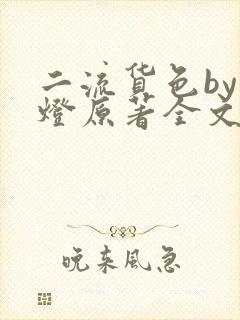 二流货色by
燈原著全文
晚来风急